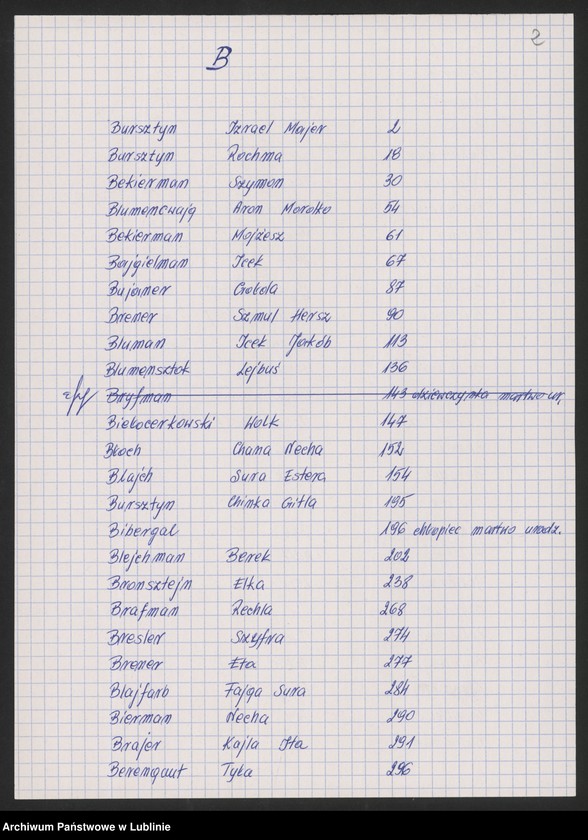 2
B
Bursztyn Izrael Majer 2
Bursztyn Rochma 18
Bekierman Szymon 30
Blumencwajg Aron Mordko 54
Bekierman Mojżesz 61
Bajgielman Icek 67
Bujamer 87
Brener Szmul Hersz 90
Bluman Icek Jakób 113
Blumensztok Lejbuś 136
Bryfman 143 dziewczynka martwo ur.
Biełocerkowski Wolk 147
Bloch Chana Necha 152
Blajch Sura Estera 154
Bursztyn Chinka Gitla 195
Bibergal 196 chłopiec martwo urodz.
Blejchman Berek 202
Bronsztejn Elka 238
Brafman Rechla 268
Bresler Szyfra 274
Brener Eta 277
Blajfarb Fajga Sura 284
Bierman Necha 290
Brajer Kajla Ita 291
Berengaut Tyka 296
Archiwum Państwowe w Lublinie